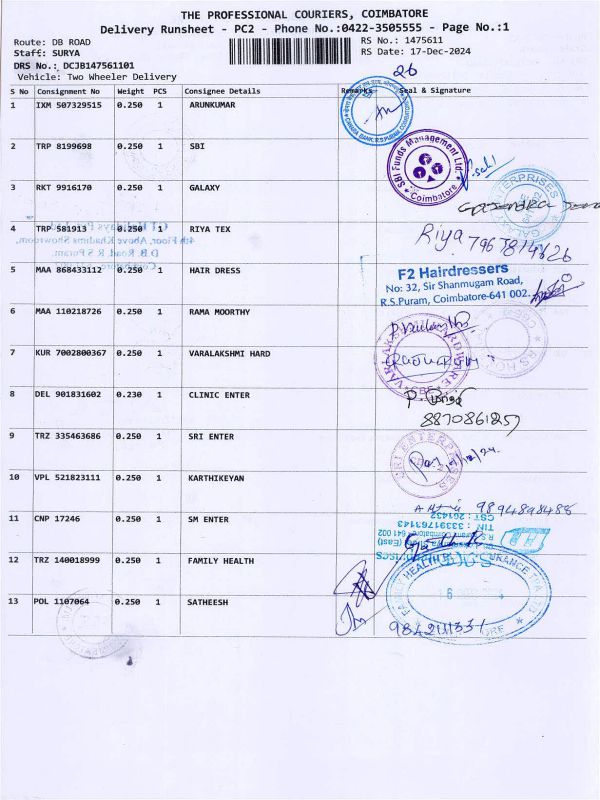 THE PROFESSIONAL COURIERS, COIMBATORE
Delivery Runsheet - PC2 - Phone No.:0422-3505555 - Page No.:1
Route: DB ROAD
RS No.: 1475611
Staff: SURYA
RS Date: 17-Dec-2024
DRS No.: DCJB147561101
Vehicle: Two Wheeler Delivery
26
S No Consignment No Weight PCS Consignee Details Remarks Seal & Signature
1 IXM 507329515 0.250 1 ARUNKUMAR
2 TRP 8199698 0.250 1 SBI
SBI Funds Management Ltd. Coimbatore
3 RKT 9916170 0.250 1 GALAXY
GALAXY ENTERPRISES
4 TRP 581913 0.250 1 RIYA TEX
Riya 7967814626
4th Floor, Above Khadims Showroom,
D.B. Road, R.S.Puram,
5 MAA 868433112 0.250 1 HAIR DRESS
F2 Hairdressers
No: 32, Sir Shanmugam Road,
R.S.Puram, Coimbatore-641 002.
6 MAA 110218726 0.250 1 RAMA MOORTHY
7 KUR 7002800367 0.250 1 VARALAKSHMI HARD
8 DEL 901831602 0.230 1 CLINIC ENTER
8870861257
9 TRZ 335463686 0.250 1 SRI ENTER
SRI ENTERPRISES
10 VPL 521823111 0.250 1 KARTHIKEYAN
9894898488
11 CNP 17246 0.250 1 SM ENTER
CST : 261432
TIN : 33391761143
12 TRZ 140018999 0.250 1 FAMILY HEALTH
13 POL 1107064 0.250 1 SATHEESH
9842111331